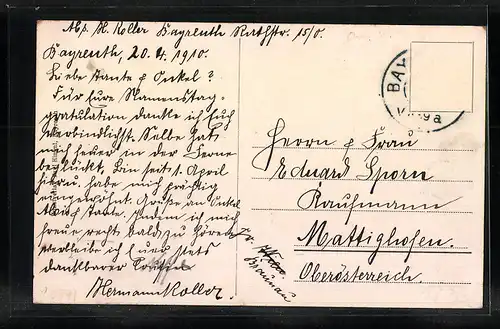 Abs. H. Koller Bayreuth Rathstr. 15/0.
Bayreuth, 20.4.1910.
Liebe Tante & Onkel!
Für Eure Namenstag-
gratulation danke ich Euch
verbindlichst. Selbe hat
mich heuer in der Ferne
beglückt. Bin seit 1. April
hier u. habe mich prächtig
eingewöhnt. Grüße an Onkel
Alois & Tante. Indem ich mich
freue recht bald zu hören
verbleibe ich Euer stets
dankbarer
Hermann Koller.
BAY
Herrn & Frau
Eduard Sporn
Kaufmann
Mattighofen.
Oberösterreich.
Braunau